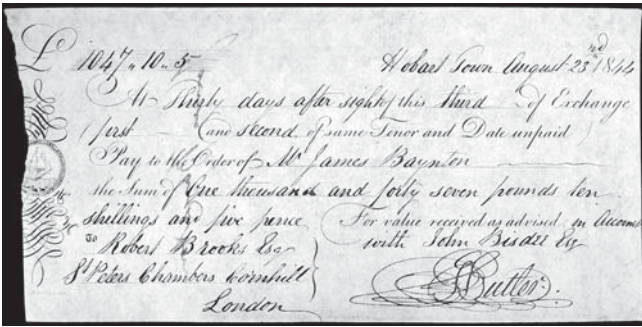 £ 1047,, 10,, 5 Hobart Town August 23rd 1844
At Thirty days after sight of this third of Exchange
(first and second of same Tenor and Date unpaid)
Pay to the Order of Mr James Baynton
the Sum of One thousand and forty seven pounds ten
shillings and five pence For value received as advised in Account
To Robert Brooks Esq with John Bisdee Esq
St Peters Chambers Cornhill
London